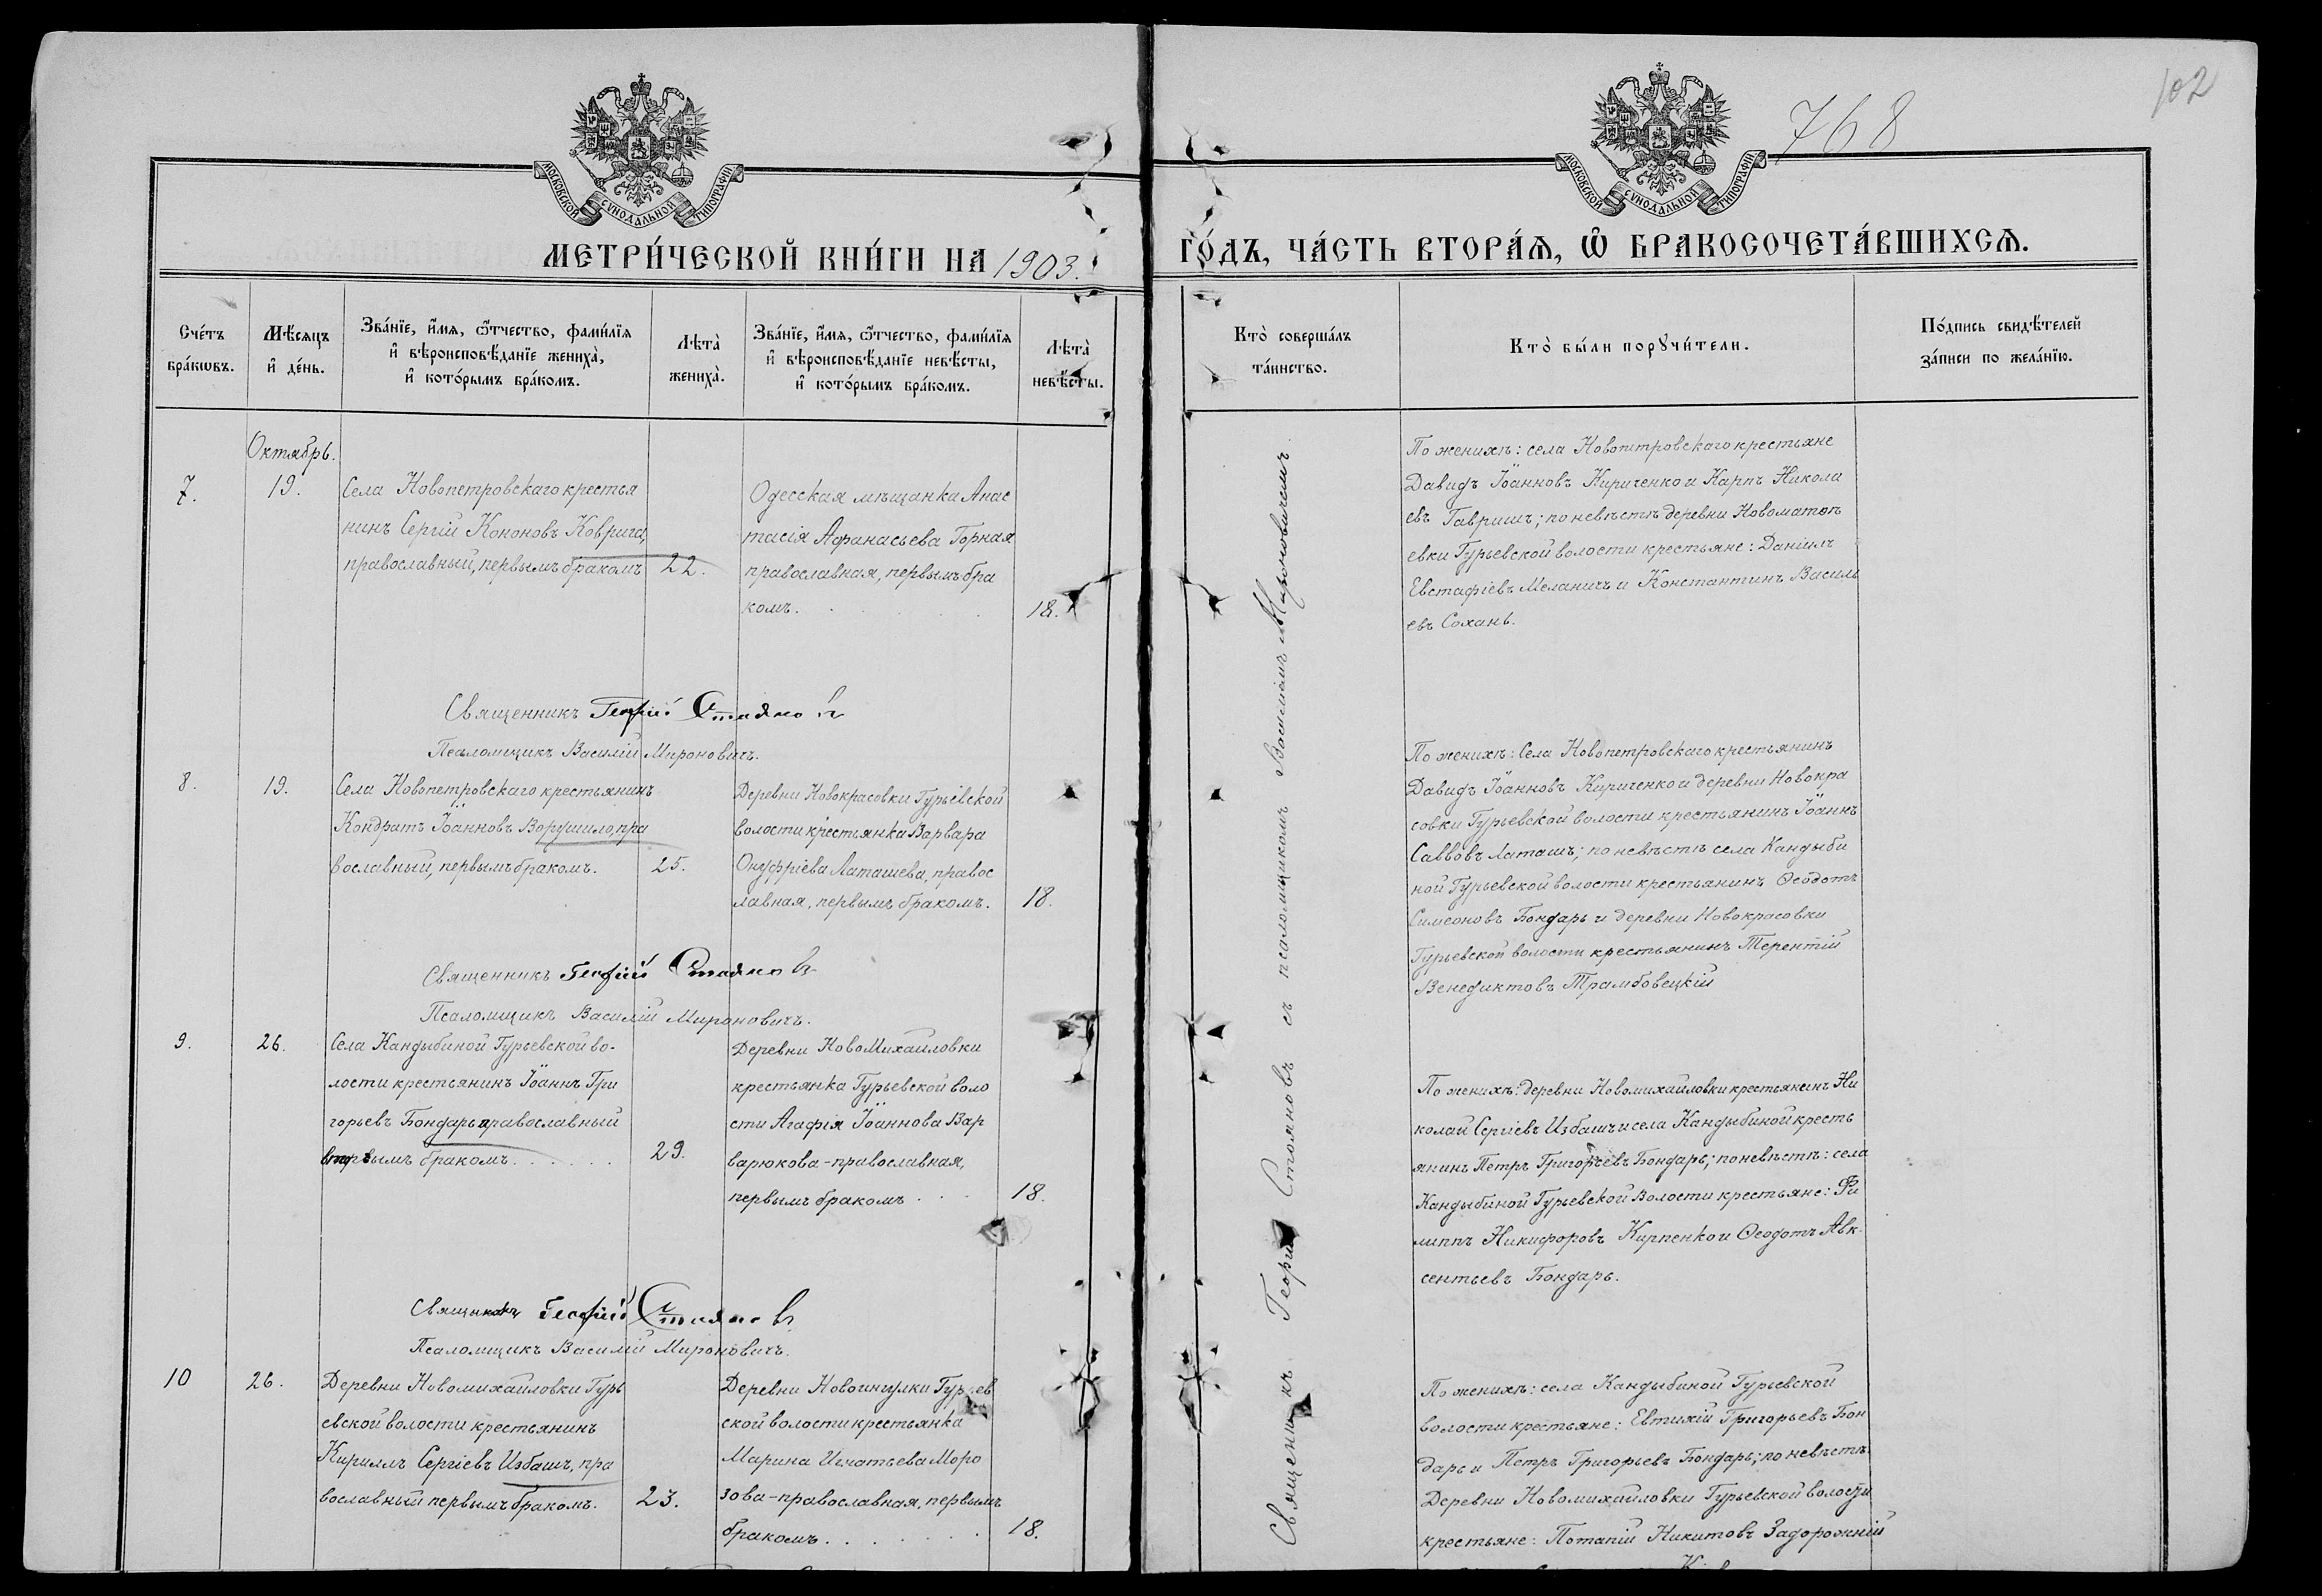 102
768
МОСКОВСКОЙ СУНОДАЛЬНОЙ ТИПОГРАФІИ
МОСКОВСКОЙ СУНОДАЛЬНОЙ ТИПОГРАФІИ
МЕТРИ́ЧЕСКОЙ КНИ́ГИ НА 1903.
ГО́ДЪ, ЧА́СТЬ ВТОРА́Я, Ѡ БРАКОСОЧЕТА́ВШИХСЯ.
Сче́тъ
бра́кѡвъ.
Мѣ́сяцъ
и де́нь.
Зва́нїе, и́мя, ѻ҆́тчество, фами́лїя
и вѣроисповѣ́данїе жениха̀,
и кото́рымъ бра́комъ.
Лѣта̀
жениха̀.
Зва́нїе, и́мя, ѻ҆́тчество, фами́лїя
и вѣроисповѣ́данїе невѣ́сты,
и кото́рымъ бра́комъ.
Лѣта̀
невѣ́сты.
Кто̀ соверша́лъ
та́инство.
Кто̀ бы́ли порꙋчи́тели.
По́дпись свидѣ́телей
за́писи по жела́нїю.
Октябрь.
7.
19.
Села Новопетровскаго крестья
нинъ Сергій Кононовъ Коврига,
православный, первымъ бракомъ
22.
Одесская мѣщанка Анас
тасія Афанасьева Горная
православная, первымъ бра
комъ.
18.
По женихѣ: села Новопетровскаго крестьяне
Давидъ Іоанновъ Кириченко и Карпъ Никола
евъ Гавришъ; по невѣстѣ деревни Новоматвѣ
евки Гурьевской волости крестьяне: Даніилъ
Евстафіевъ Меланичъ и Константинъ Василь
евъ Сохань.
Священникъ Георгій Стояновъ
Псаломщикъ Василій Мироновичъ.
8.
19.
Села Новопетровскаго крестьянинъ
Кондратъ Іоанновъ Ворушило, пра
вославный, первымъ бракомъ.
25.
Деревни Новокрасовки Гурьевской
волости крестьянка Варвара
Онуфріева Латашева, правос
лавная, первымъ бракомъ.
18.
По женихѣ: Села Новопетровскаго крестьянинъ
Давидъ Іоанновъ Кириченко и деревни Новокра
совки Гурьевской волости крестьянинъ Іоаннъ
Саввовъ Латашъ; по невѣстѣ села Кандыби
ной Гурьевской волости крестьянинъ Ѳеодотъ
Симеоновъ Бондарь и деревни Новокрасовки
Гурьевской волости крестьянинъ Терентій
Венедиктовъ Трамбовецкій
Священникъ Георгій Стояновъ
Псаломщикъ Василій Мироновичъ.
9.
26.
Села Кандыбиной Гурьевской во-
лости крестьянинъ Іоаннъ Гри
горьевъ Бондарь православный
бракомъ.
29.
Деревни НовоМихайловки
крестьянка Гурьевской воло
сти Агафія Іоаннова Вар
варюкова - православная,
первымъ бракомъ
18.
По женихѣ: деревни Новомихайловки крестьянинъ Ни
колай Сергіевъ Избашъ и села Кандыбиной кресть
янинъ Петръ Григорьевъ Бондарь; по невѣстѣ: села
Кандыбиной Гурьевской Волости крестьяне: Фи
липпъ Никифоровъ Кирпенко и Ѳеодотъ Авк-
сентьевъ Бондарь.
Священникъ Георгій Стояновъ
Псаломщикъ Василій Мироновичъ.
10
26.
Деревни Новомихайловки Гурь
евской волости крестьянинъ
Кириллъ Сергіевъ Избашъ, пра
вославный первымъ бракомъ.
23.
Деревни Новоингулки Гурьев
ской волости крестьянка
Марина Игнатьева Моро
зова - православная, первымъ
бракомъ.
18.
По женихѣ: села Кандыбиной Гурьевской
волости крестьяне: Евтихій Григорьевъ Бон
дарь и Петръ Григорьевъ Бондарь; по невѣстѣ
Деревни Новомихайловки Гурьевской волости
крестьяне: Потапій Никитовъ Задорожній
Священникъ Георгій Стояновъ съ псаломщикомъ Василіемъ Мироновичемъ.